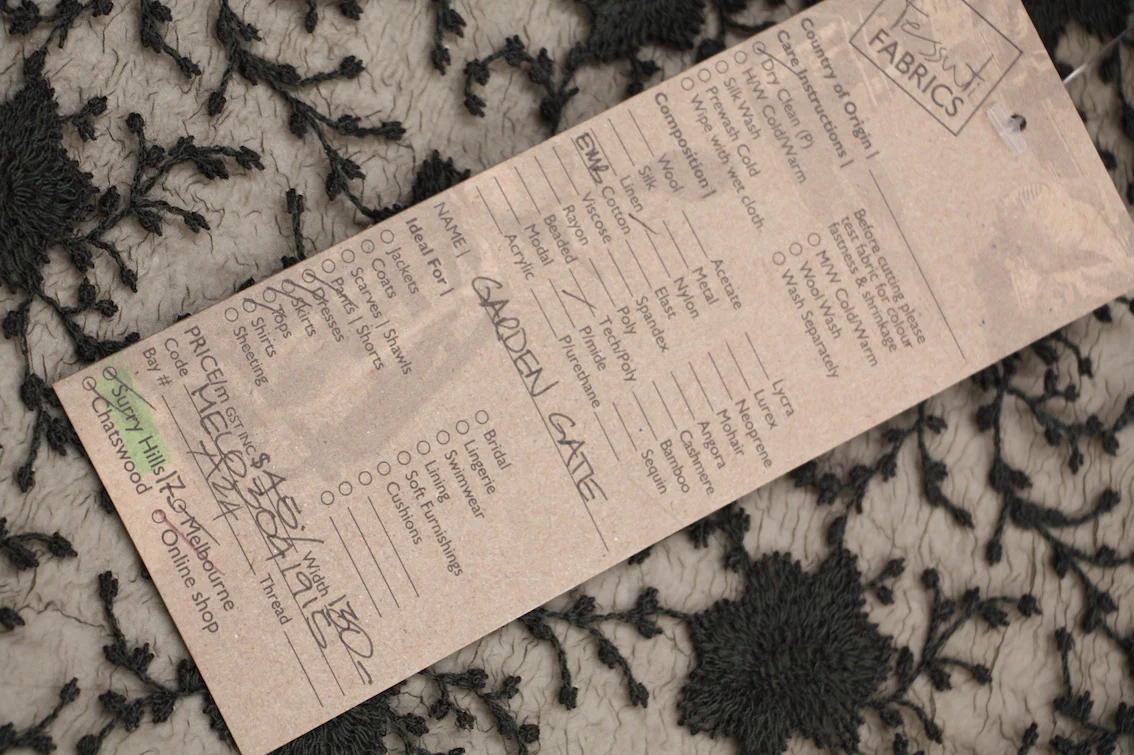 Tessuti
FABRICS
Country of Origin |
Care Instructions |
Dry Clean (P)
H/W Cold/Warm
Silk Wash
Prewash Cold
Wipe with wet cloth
Before cutting please
test fabric for colour
fastness & shrinkage
M/W Cold/Warm
Wool Wash
Wash Separately
Composition |
Wool
Silk
Linen
Cotton
Viscose
Rayon
Beaded
Modal
Acrylic
Acetate
Metal
Nylon
Elast
Spandex
Poly
Tech/Poly
P/mide
P/urethane
Lycra
Lurex
Neoprene
Mohair
Angora
Cashmere
Bamboo
Sequin
NAME | GARDEN GATE
Ideal For |
Jackets
Coats
Scarves | Shawls
Pants | Shorts
Dresses
Skirts
Tops
Shirts
Sheeting
Bridal
Lingerie
Swimwear
Lining
Soft Furnishings
Cushions
PRICE/m GST INC $ Width 130
Code
Bay # Thread
Surry Hills Melbourne
Chatswood Online shop